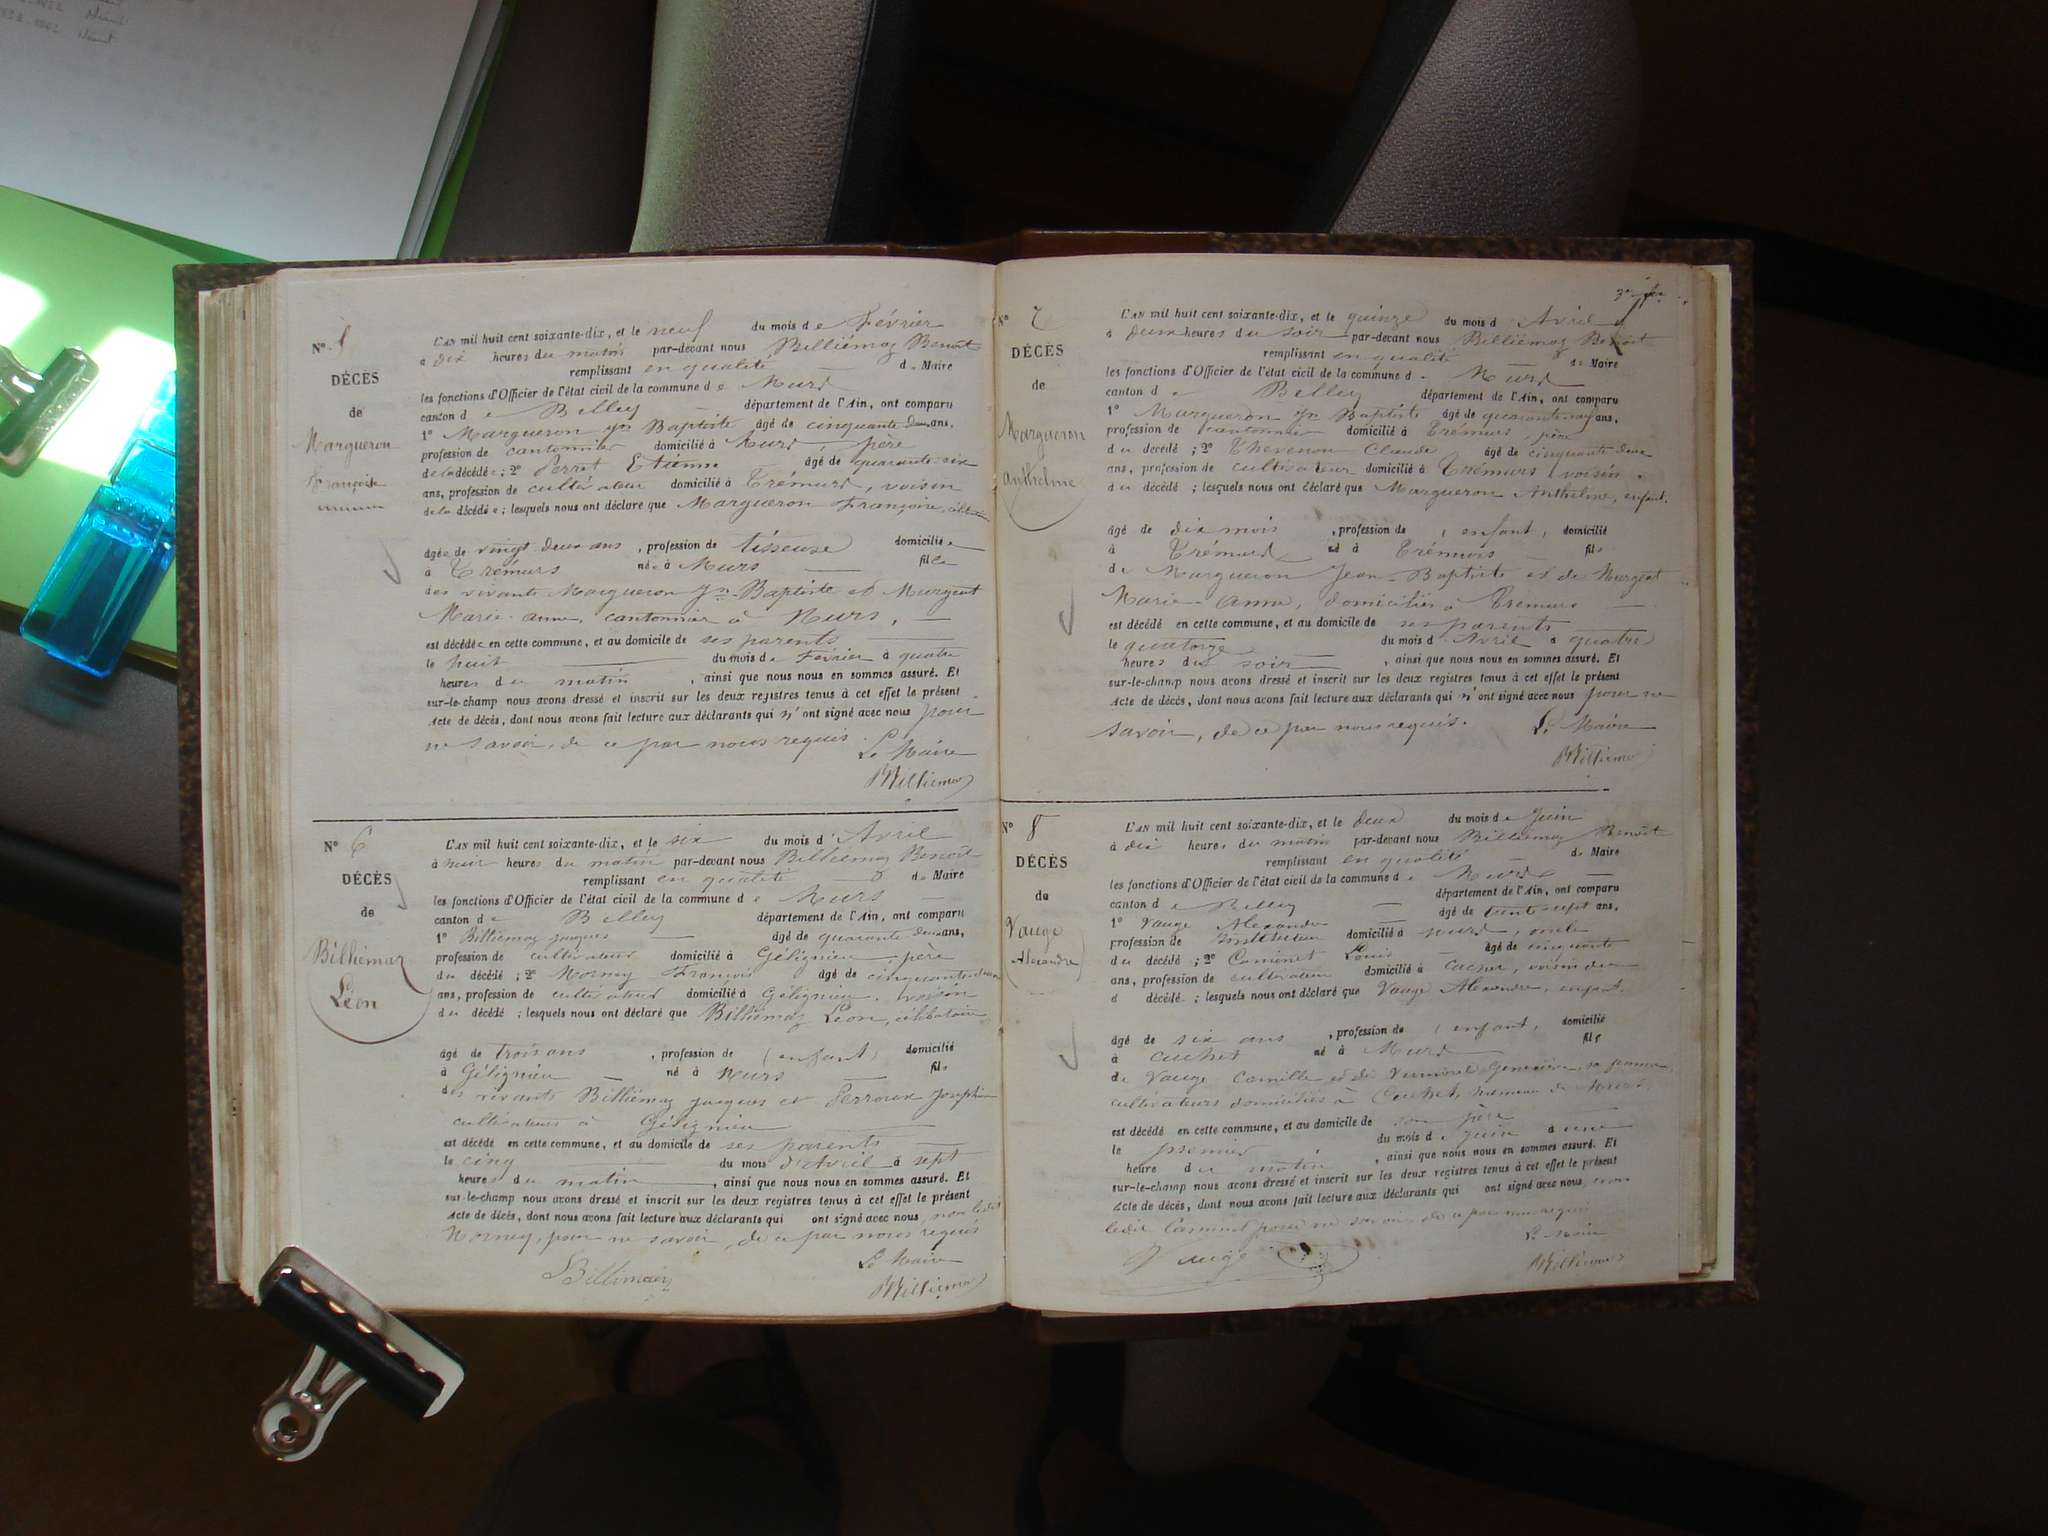 Néant
Néant
N° 5
DÉCÈS
de
Margueron
Françoise
L'AN mil huit cent soixante-dix, et le neuf du mois de Février
à dix heures du matin par-devant nous Billiémaz Benoît
remplissant en qualité de Maire
les fonctions d'Officier de l'état civil de la commune de Murs
canton de Belley département de l'Ain, ont comparu
1° Margueron Jn Baptiste âgé de cinquante deux ans,
profession de cantonnier domicilié à Murs, père
de la décédée; 2° Perret Etienne âgé de quarante-six
ans, profession de cultivateur domicilié à Trémurs, voisin
de la décédée; lesquels nous ont déclaré que Margueron Françoise, célibataire
âgée de vingt-deux ans, profession de tisseuse domiciliée
à Trémurs née à Murs fille
des vivants Margueron Jn-Baptiste et Murgeat
Marie-anne, cantonnier à Murs,
est décédée en cette commune, et au domicile de ses parents
le huit du mois de Février à quatre
heures du matin, ainsi que nous nous en sommes assuré. Et
sur-le-champ nous avons dressé et inscrit sur les deux registres tenus à cet effet le présent
Acte de décès, dont nous avons fait lecture aux déclarants qui n'ont signé avec nous pour
ne savoir, de ce par nous requis.
Le Maire
BBilliemaz
N° 6
DÉCÈS
de
Billiemaz
Léon
L'AN mil huit cent soixante-dix, et le six du mois d'Avril
à neuf heures du matin par-devant nous Billiémaz Benoît
remplissant en qualité de Maire
les fonctions d'Officier de l'état civil de la commune de Murs
canton de Belley département de l'Ain, ont comparu
1° Billiémaz Jacques âgé de quarante deux ans,
profession de cultivateur domicilié à Gélignieu, père
du décédé; 2° Mornay François âgé de cinquante
ans, profession de cultivateur domicilié à Gélignieu, voisin
du décédé; lesquels nous ont déclaré que Billiémaz Léon, célibataire
âgé de trois ans, profession de (enfant) domicilié
à Gélignieu né à Murs fils
des vivants Billiémaz Jacques et Ferroux Josephine
cultivateurs à Gélignieu
est décédé en cette commune, et au domicile de ses parents
le cinq du mois d'Avril à sept
heures du matin, ainsi que nous nous en sommes assuré. Et
sur-le-champ nous avons dressé et inscrit sur les deux registres tenus à cet effet le présent
Acte de décès, dont nous avons fait lecture aux déclarants qui ont signé avec nous, non ledit
Mornay, pour ne savoir, de ce par nous requis
Le Maire
Billimaz
BBilliemaz
N° 7
DÉCÈS
de
Margueron
Anthelme
L'AN mil huit cent soixante-dix, et le quinze du mois d'Avril
à deux heures du soir par-devant nous Billiémaz Benoît
remplissant en qualité de Maire
les fonctions d'Officier de l'état civil de la commune de Murs
canton de Belley département de l'Ain, ont comparu
1° Margueron Jn Baptiste âgé de quarante-neuf ans,
profession de cantonnier domicilié à Trémurs, père
du décédé; 2° Thevenon Claude âgé de cinquante deux
ans, profession de cultivateur domicilié à Trémurs voisin
du décédé; lesquels nous ont déclaré que Margueron Anthelme, enfant,
âgé de dix mois, profession de (enfant) domicilié
à Trémurs né à Trémurs fils
de Margueron Jean-Baptiste et de Murgeat
Marie-anne, domiciliés à Trémurs
est décédé en cette commune, et au domicile de ses parents
le quatorze du mois d'Avril à quatre
heures du soir, ainsi que nous nous en sommes assuré. Et
sur-le-champ nous avons dressé et inscrit sur les deux registres tenus à cet effet le présent
Acte de décès, dont nous avons fait lecture aux déclarants qui n'ont signé avec nous pour ne
savoir, de ce par nous requis.
Le Maire
BBilliemaz
N° 8
DÉCÈS
de
Vauge
Alexandre
L'AN mil huit cent soixante-dix, et le deux du mois de Juin
à dix heures du matin par-devant nous Billiémaz Benoît
remplissant en qualité de Maire
les fonctions d'Officier de l'état civil de la commune de Murs
canton de Belley département de l'Ain, ont comparu
1° Vauge Alexandre âgé de trente-sept ans,
profession de Instituteur domicilié à Murs, oncle
du décédé; 2° Caminet Louis âgé de cinquante
ans, profession de cultivateur domicilié à Cuchet, voisin du
d décédé; lesquels nous ont déclaré que Vauge Alexandre, enfant,
âgé de six ans, profession de (enfant) domicilié
à Cuchet né à Murs fils
de Vauge Camille et de Geneviève, sa femme,
cultivateurs domiciliés à Cuchet, hameau de Murs,
est décédé en cette commune, et au domicile de son père
le premier du mois de Juin à une
heure du matin, ainsi que nous nous en sommes assuré. Et
sur-le-champ nous avons dressé et inscrit sur les deux registres tenus à cet effet le présent
Acte de décès, dont nous avons fait lecture aux déclarants qui ont signé avec nous, non
ledit Caminet pour ne savoir, de ce par nous requis
Le Maire
Vauge
BBilliemaz